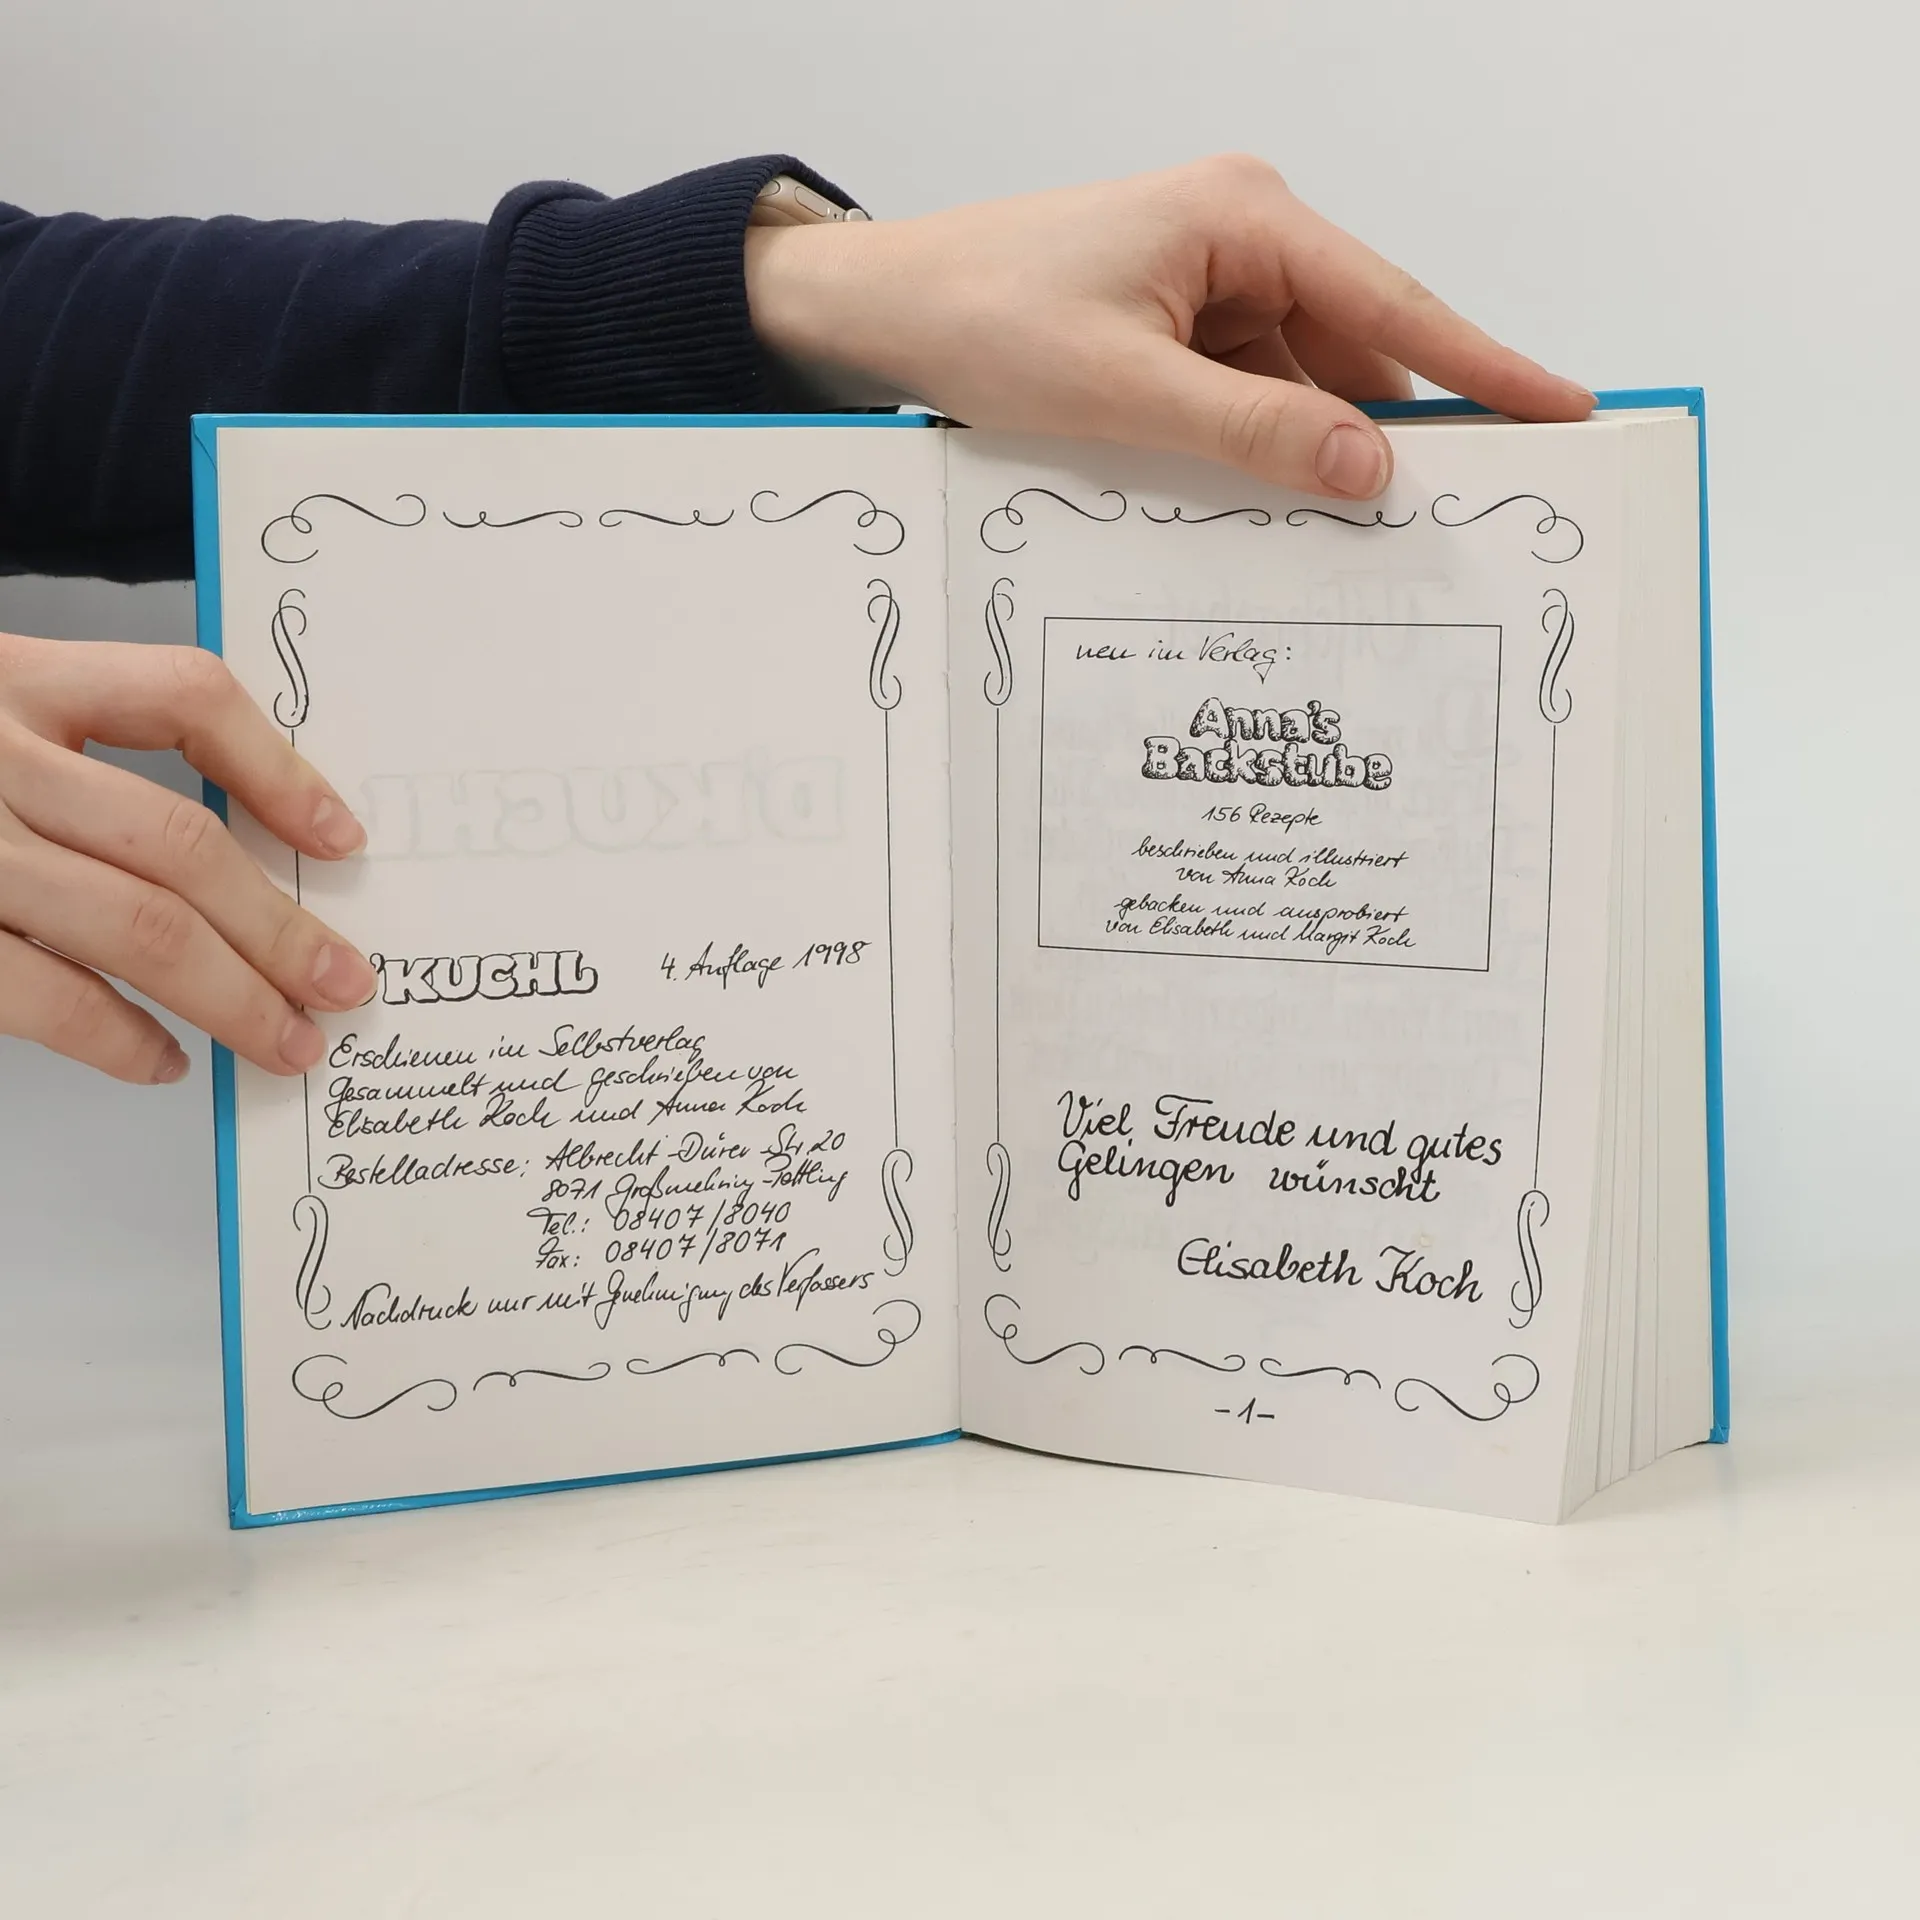 D'KUCHL 4. Auflage 1998
Erschienen im Selbstverlag
Gesammelt und geschrieben von
Elisabeth Koch und Anna Koch
Bestelladresse: Albrecht-Dürer-Str. 20
8071 Großmehring-Pettling
Tel.: 08407/8040
Fax: 08407/8071
Nachdruck nur mit Genehmigung des Verfassers
neu im Verlag:
Anna's
Backstube
156 Rezepte
beschrieben und illustriert
von Anna Koch
gebacken und ausprobiert
von Elisabeth und Margit Koch
Viel Freude und gutes
Gelingen wünscht
Elisabeth Koch
-1-